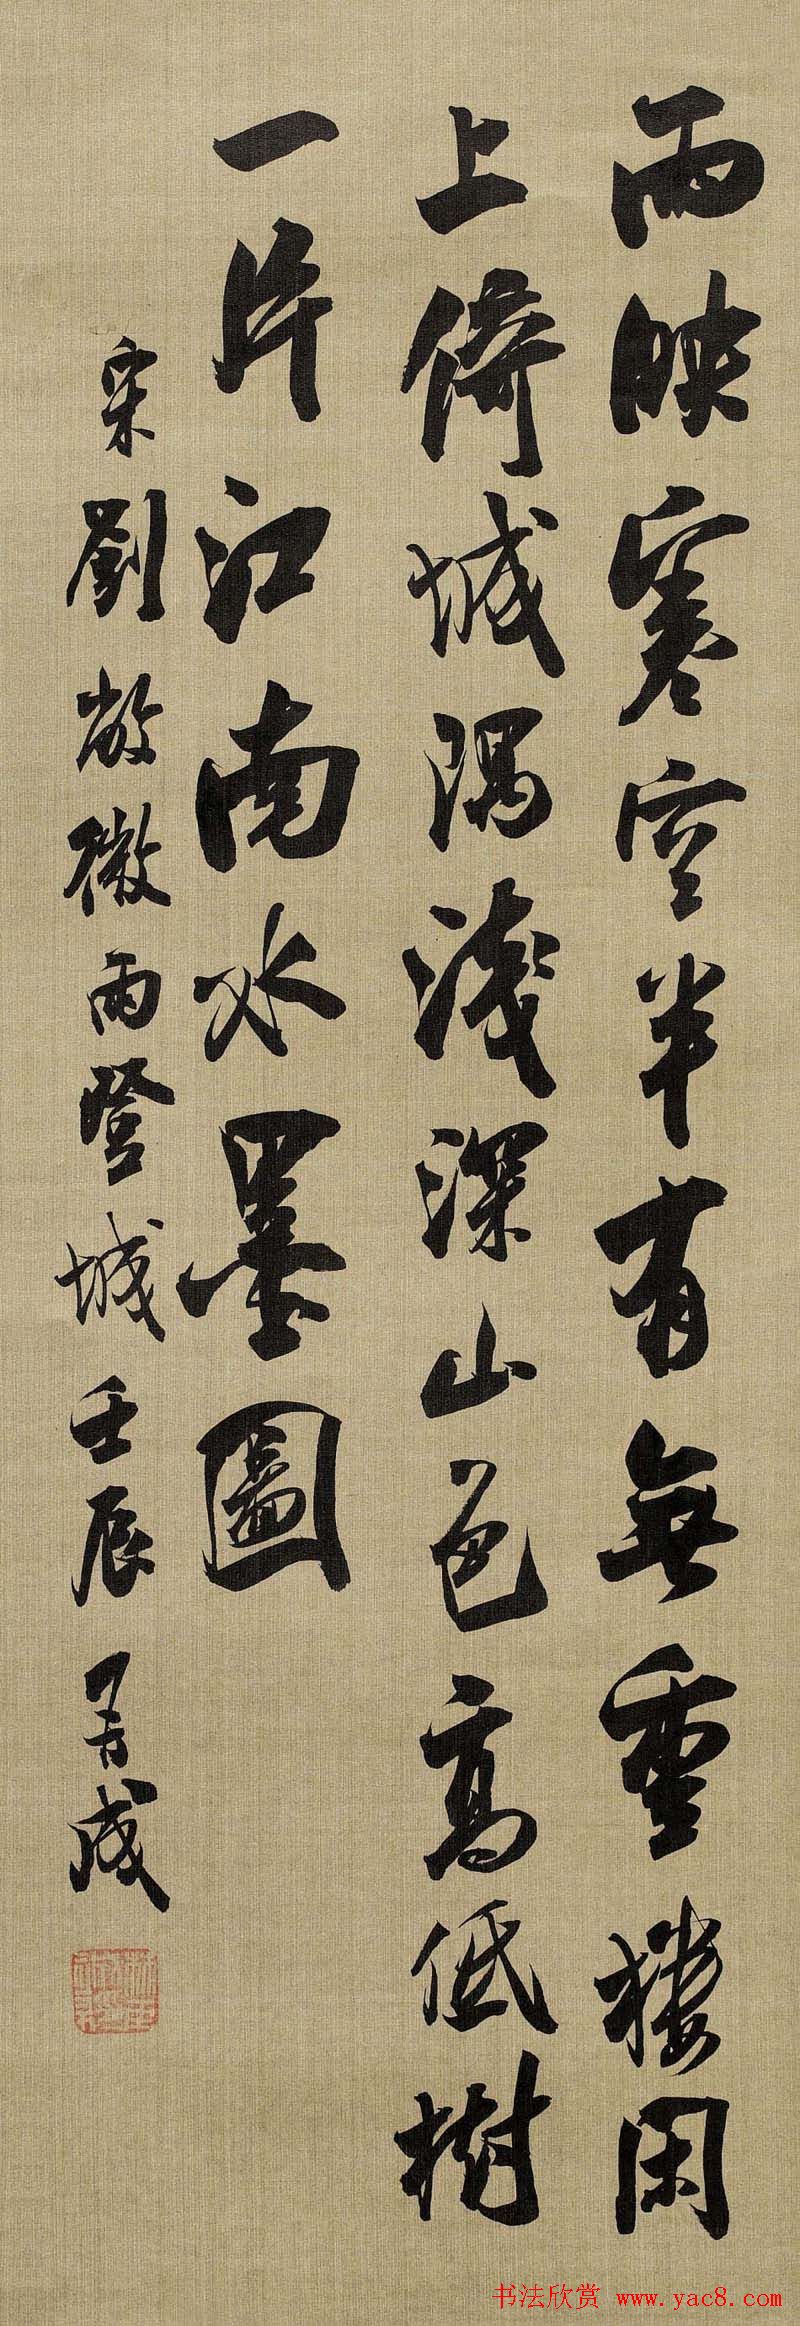 雨映寒空半有無重樓閑
上倚城隅淺深山色高低樹
一片江南水墨圖
宋劉敞微雨登城壬辰
书法欣赏 www.yac8.com